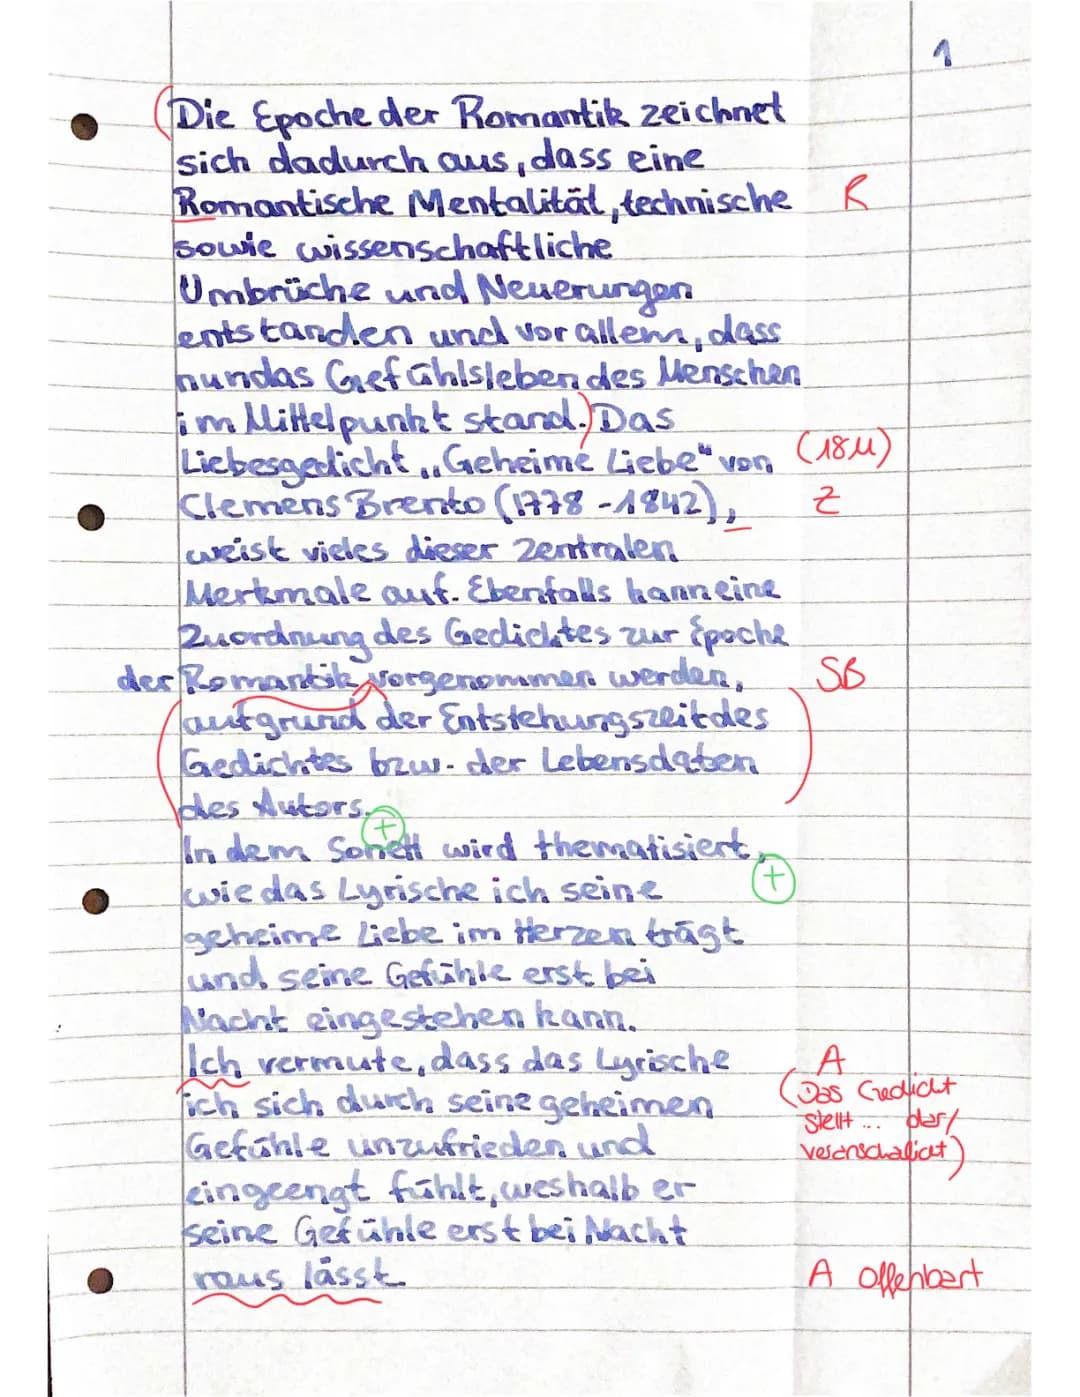 1
Die Epoche der Romantik zeichnet
sich dadurch aus, dass eine
Romantische Mentalität, technische R
sowie wissenschaftliche
Umbrüche und Neuerungen
entstanden und vor allem, dass
nun das Gefühlsleben des Menschen
im Mittelpunkt stand.) Das
Liebesgedicht „Geheime Liebe" von (1811)
Clemens Brento (1778-1842), Z
weist vieles dieser Zentralen
Merkmale auf. Ebenfalls kann eine
Zuordnung des Gedichtes zur Epoche
der Romantik vorgenommen werden, SB
(aufgrund der Entstehungszeit des
Gedichtes bzw. der Lebensdaten
des Autors.)
+
In dem Sonett wird thematisiert,
wie das Lyrische ich seine +
geheime Liebe im Herzen trägt
und seine Gefühle erst bei
Nacht eingestehen kann.
Ich vermute, dass das Lyrische A
ich sich durch seine geheimen (Das Gedicht
stellt ... dar/
Gefühle unzufrieden und veranschaulicht)
eingeengt fühlt, weshalb er
seine Gefühle erst bei Nacht
raus lässt A offenbart